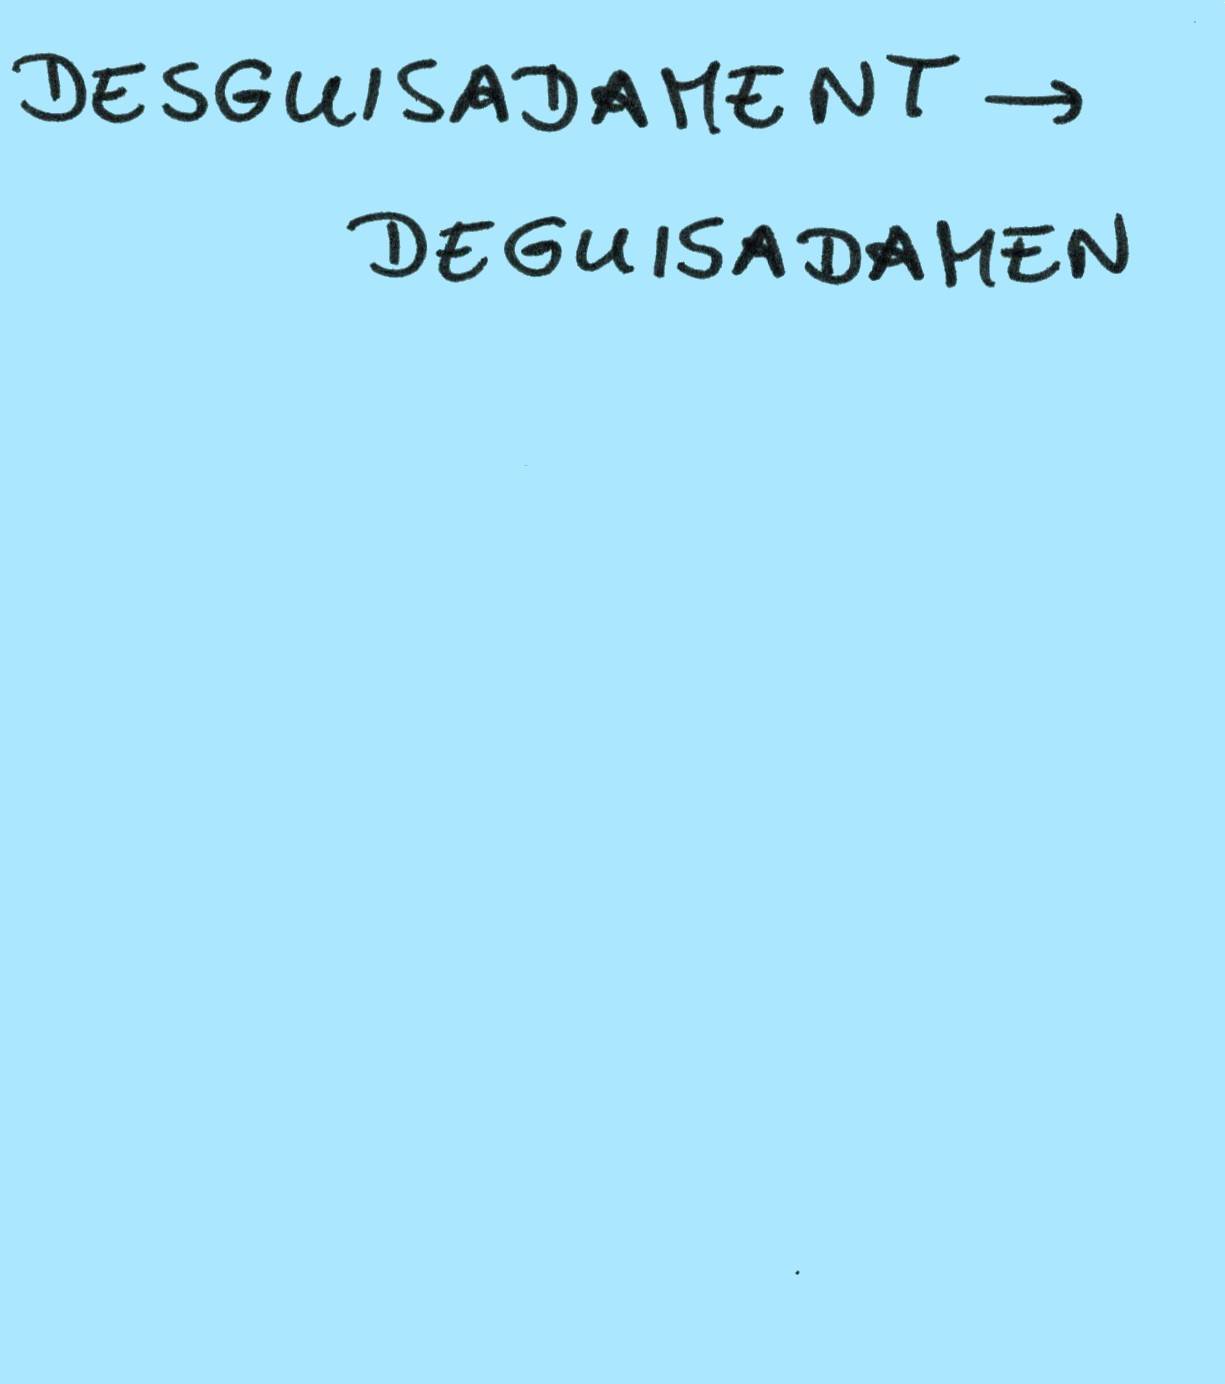 DESGUISADAMENT →
DEGUISADAMEN